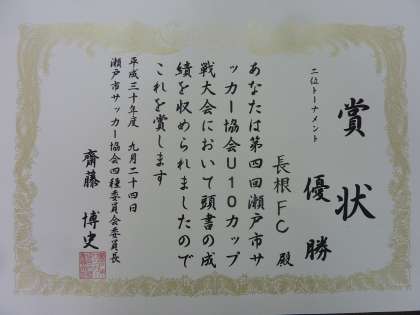 賞状
二位トーナメント
優勝
長根FC 殿
あなたは第四回瀬戸市サ
ッカー協会U10カップ
戦大会において頭書の成
績を収められましたので
これを賞します
平成三十年度 九月二十四日
瀬戸市サッカー協会四種委員会委員長
齋藤 博史